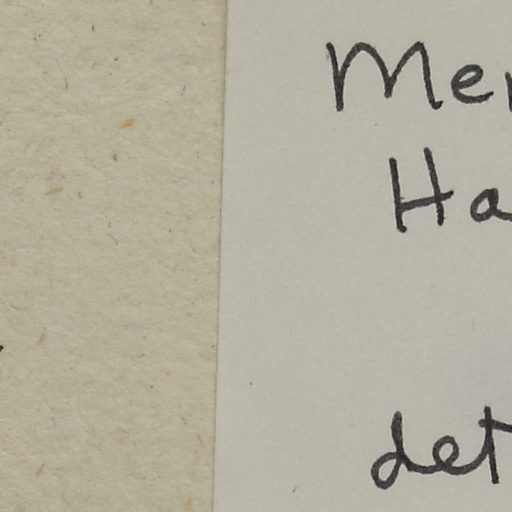 Mer
Ha
det